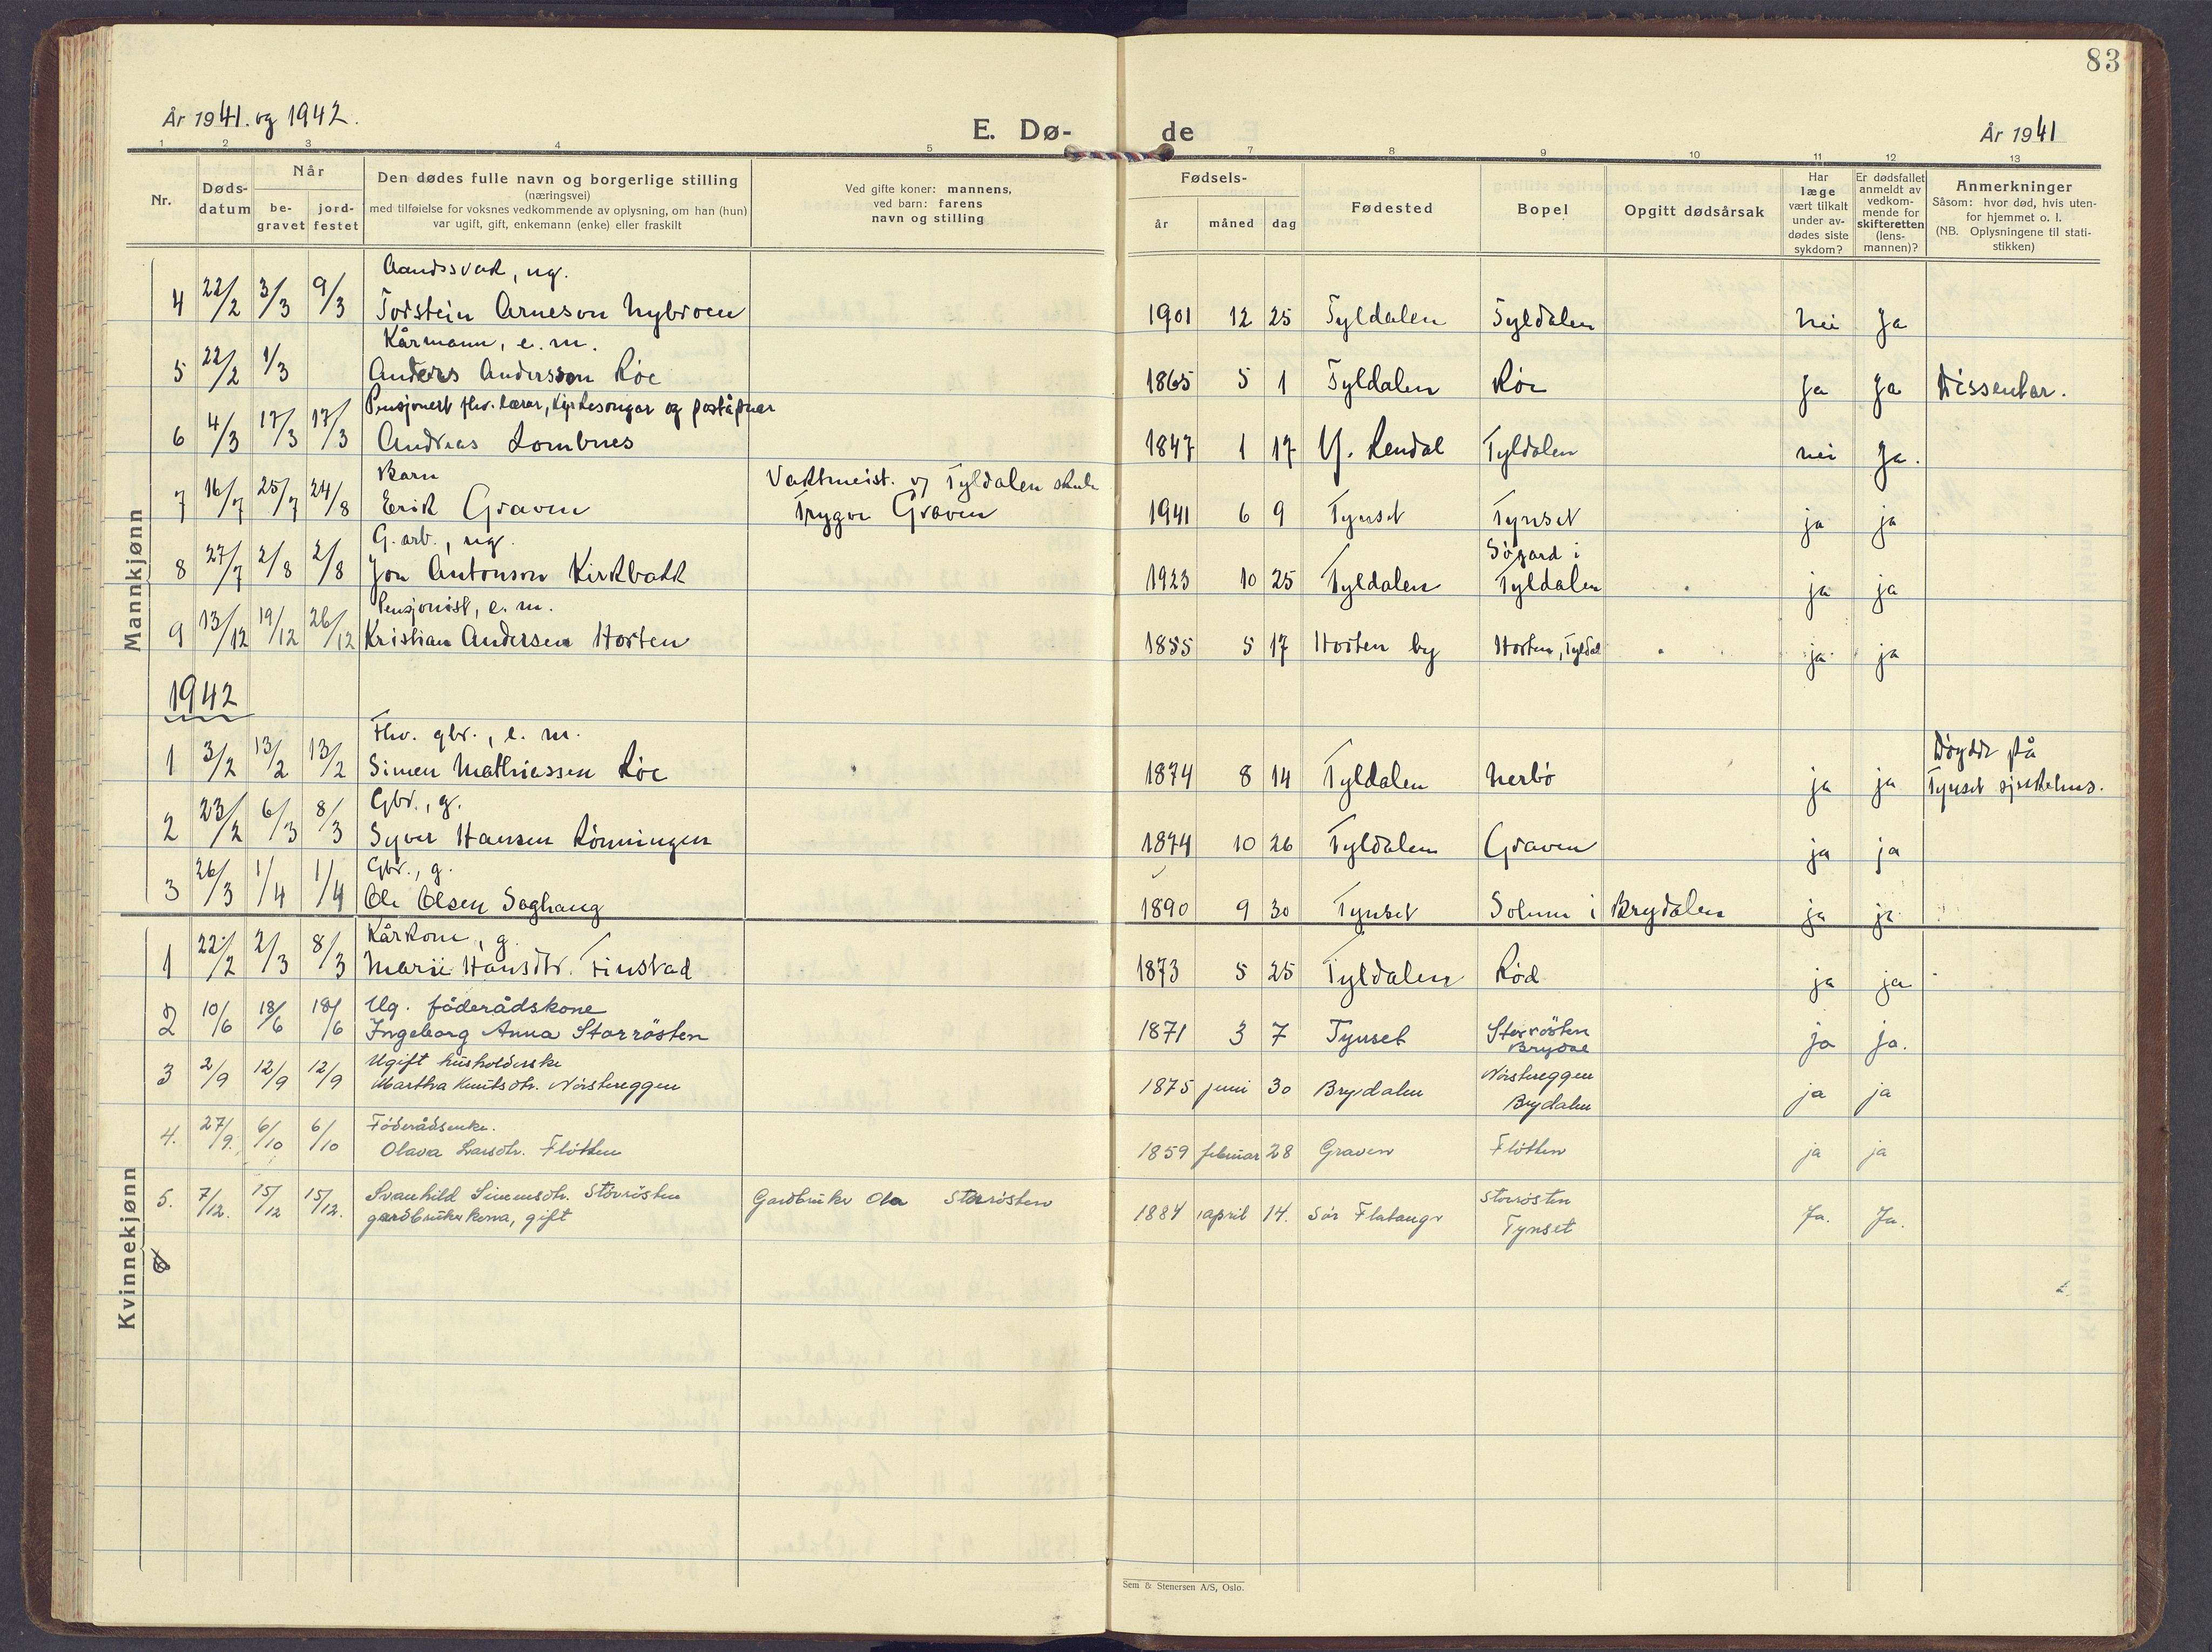 83
År 1941. og 1942.
E. Dø-
de
År 1941
1 2 3 4 5 7 8 9 10 11 12 13
Nr.
Døds-
datum
Når
be-
gravet
jord-
festet
Den dødes fulle navn og borgerlige stilling
(næringsvei)
med tilføielse for voksnes vedkommende av oplysning, om han (hun)
var ugift, gift, enkemann (enke) eller fraskilt
Ved gifte koner: mannens,
ved barn: farens
navn og stilling
Fødsels-
år måned dag
Fødested
Bopel
Opgitt dødsårsak
Har
læge
vært tilkalt
under av-
dødes siste
sykdom?
Er dødsfallet
anmeldt av
vedkom-
mende for
skifteretten
(lens-
mannen)?
Anmerkninger
Såsom: hvor død, hvis uten-
for hjemmet o. l.
(NB. Oplysningene til stati-
stikken)
Mannkjønn
Aandssvak, ug.
4 22/2 3/3 9/3 Torstein Arneson Nybroen 1901 12 25 Tyldalen Tyldalen nei Ja
Kårmann, e. m.
5 22/2 1/3 Anders Andersson Røe 1865 5 1 Tyldalen Røe Ja Ja Dissenter.
Pensjonert fhv. lærer, kirkesongar og poståpner
6 4/3 17/3 17/3 Andreas Lombnes 1847 1 17 Y. Rendal Tyldalen nei Ja.
Barn Vaktmeist. v/ Tyldalen skule
7 16/7 25/7 24/8 Erik Graven Trygve Graven 1941 6 9 Tynset Tynset ja ja
G. arb., ug. Søgard i
8 27/7 2/8 2/8 Jon Antonson Kirkbakk 1923 10 25 Tyldalen Tyldalen ja ja
Pensjonist, e. m.
9 13/12 19/12 26/12 Kristian Andersen Horten 1855 5 17 Horten by Horten, Tyldal ja ja
1942
Fhv. gbr., e. m. Døydde på
1 3/2 13/2 13/2 Simen Mathiessen Røe 1874 8 14 Tyldalen Nerbø ja ja Tynset sjukehus.
Gbr., g.
2 23/2 6/3 8/3 Syver Hansen Rønningen 1874 10 26 Tyldalen Graven ja ja
Gbr., g.
3 26/3 1/4 1/4 Ole Olsen Saghaug 1890 9 30 Tynset Solum i Brydalen ja ja
Kvinnekjønn
Kårkone, g.
1 22/2 2/3 8/3 Marie Hansdtr. Finstad 1873 5 25 Tyldalen Rød ja ja
Ug. föderådskone
2 10/6 18/6 18/6 Ingeborg Anna Storrösten 1871 3 7 Tynset Storrösten ja ja.
Brydal
Ugift husholderske Nørstereggen
3 2/9 12/9 12/9 Martha Knutsdtr. Nørstereggen 1875 juni 30 Brydalen Brydalen ja ja
Föderådsenke.
4. 27/9. 6/10 6/10 Olava Larsdtr. Fløtten 1859 februar 28 Graven Fløtten ja ja
5. 7/12. 15/12 15/12. Svanhild Simensdtr. Storrøsten Gardbruker Ola Storrøsten 1884 april 14. Sør Flatanger Storrøsten Ja. Ja.
gardbrukerkona, gift Tynset
Sem & Stenersen A/S, Oslo.